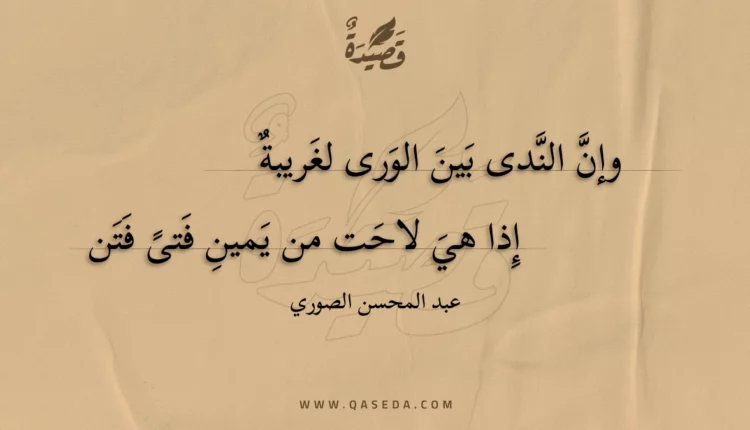 قَصِيدَةٌ
وإنَّ النَّدى بَينَ الوَرى لغَريبةٌ
إِذا هيَ لاحَت من يَمينِ فَتىً فَتَن
عبد المحسن الصوري
WWW.QASEDA.COM